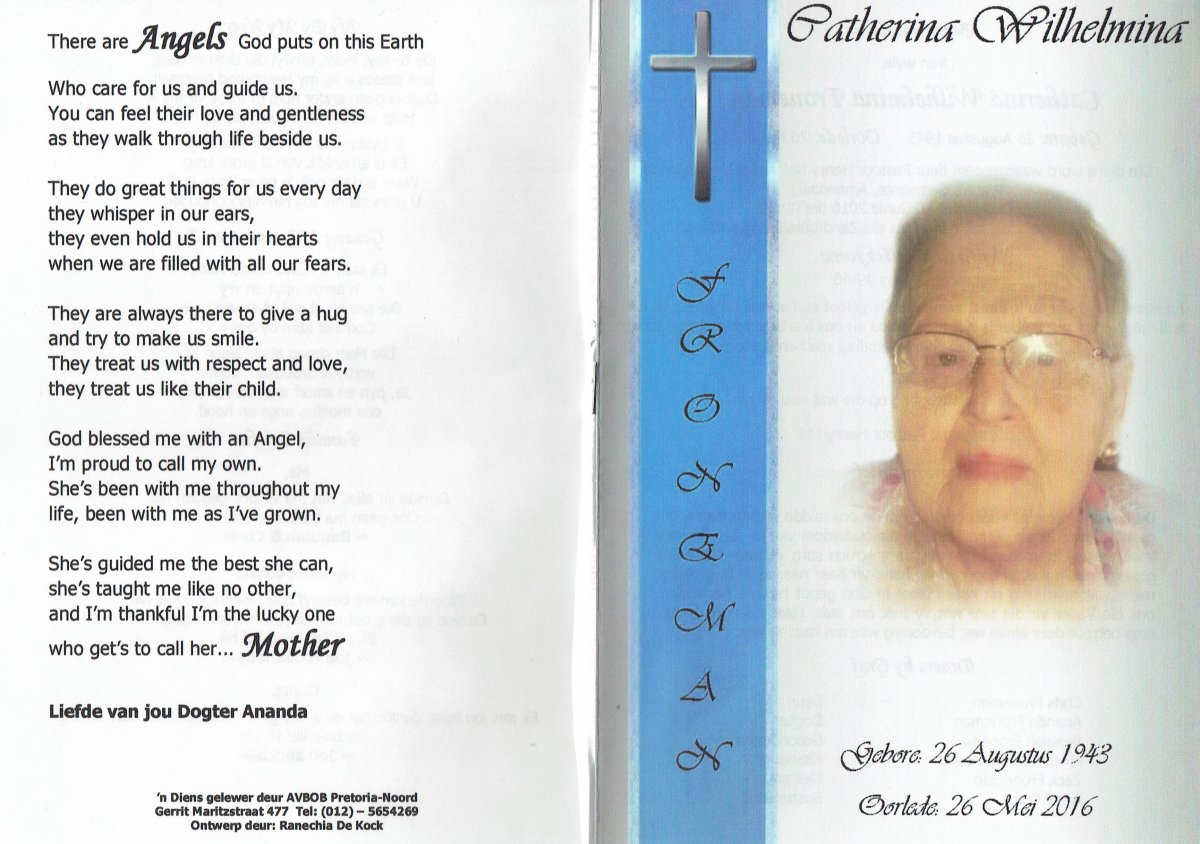 There are Angels God puts on this Earth
Who care for us and guide us.
You can feel their love and gentleness
as they walk through life beside us.
They do great things for us every day
they whisper in our ears,
they even hold us in their hearts
when we are filled with all our fears.
They are always there to give a hug
and try to make us smile.
They treat us with respect and love,
they treat us like their child.
God blessed me with an Angel,
I'm proud to call my own.
She's been with me throughout my
life, been with me as I've grown.
She's guided me the best she can,
she's taught me like no other,
and I'm thankful I'm the lucky one
who get's to call her... Mother
Liefde van jou Dogter Ananda
'n Diens gelewer deur AVBOB Pretoria-Noord
Gerrit Maritzstraat 477 Tel: (012) – 5654269
Ontwerp deur: Ranechia De Kock
Catherina Wilhelmina
FRONEMAN
Gebore: 26 Augustus 1943
Oorlede: 26 Mei 2016